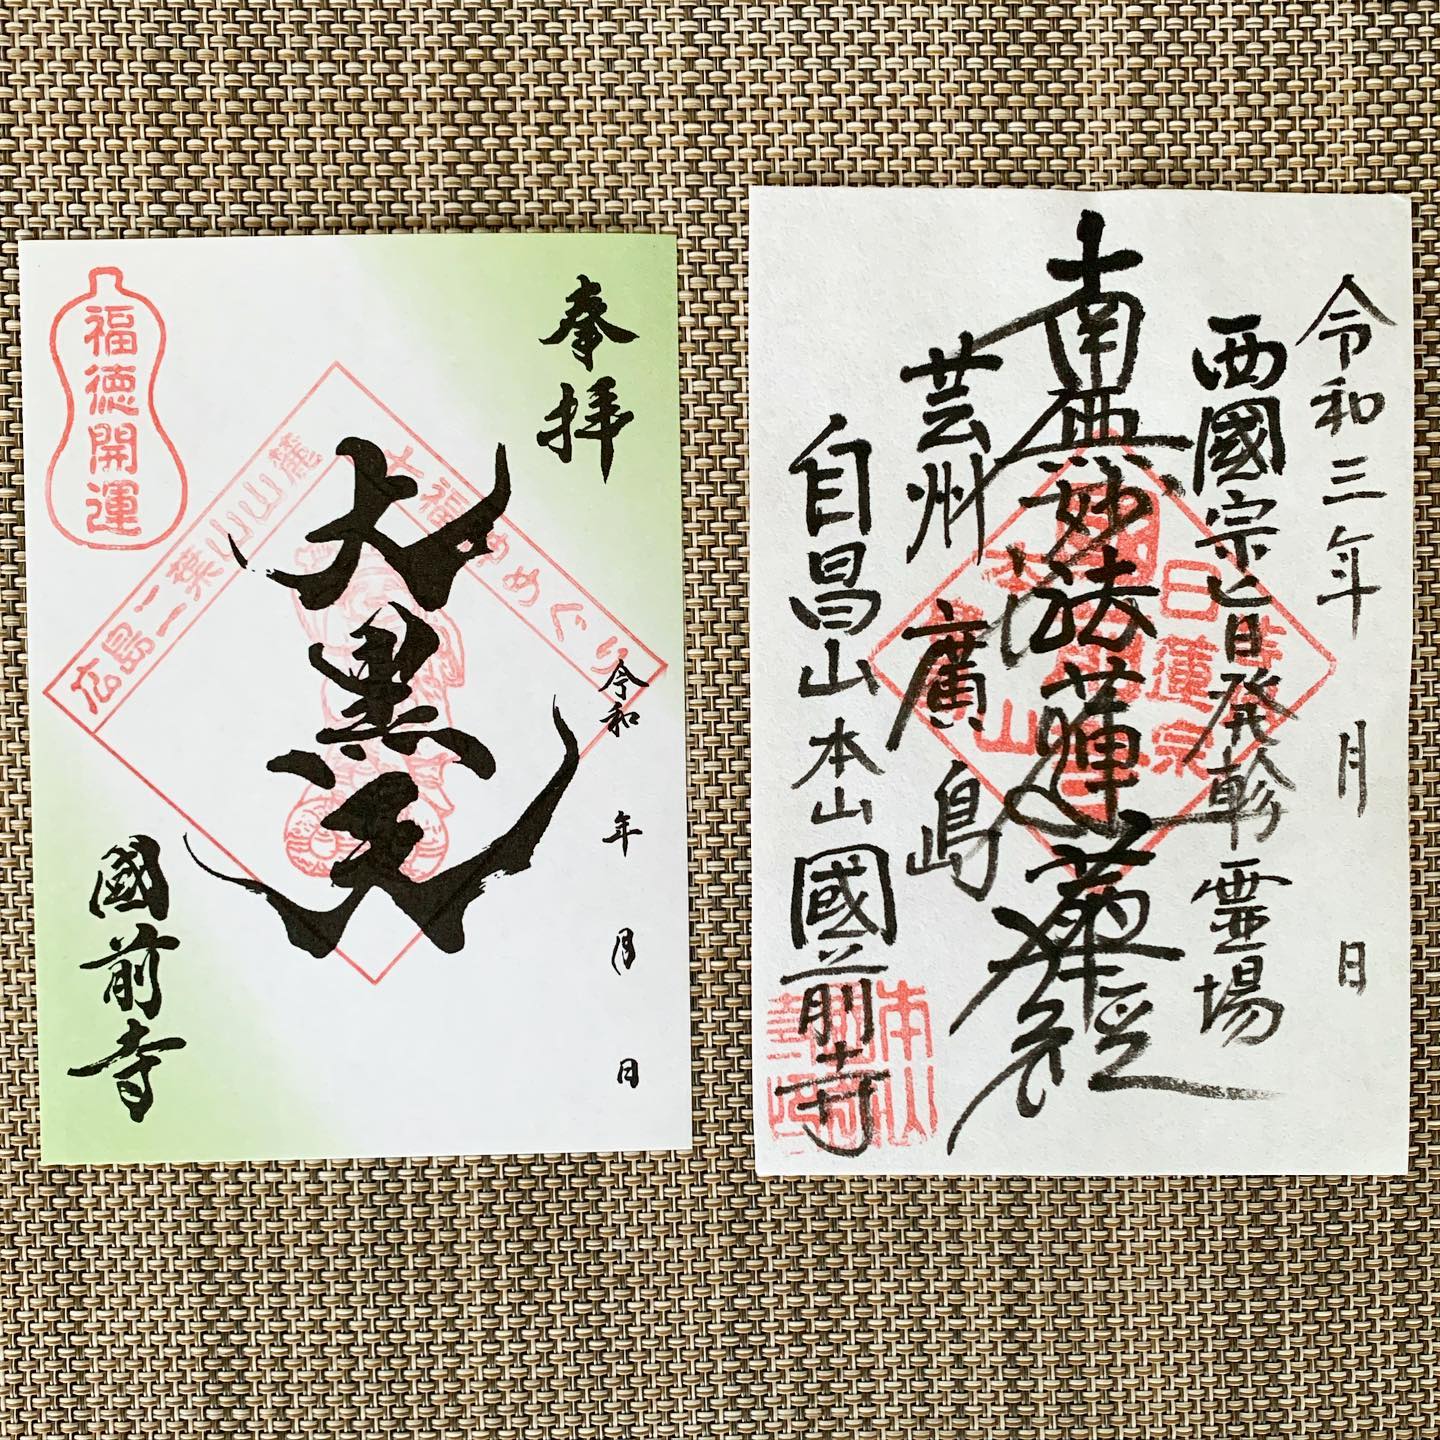 奉拝
大黒天
令和 年 月 日
國前寺
福徳開運
広島二葉山山麓
七福神めぐり
令和三年 月 日
西國宗旨発幹霊場
南無妙法蓮華経
芸州 廣島
自昌山本山國前寺
日蓮宗